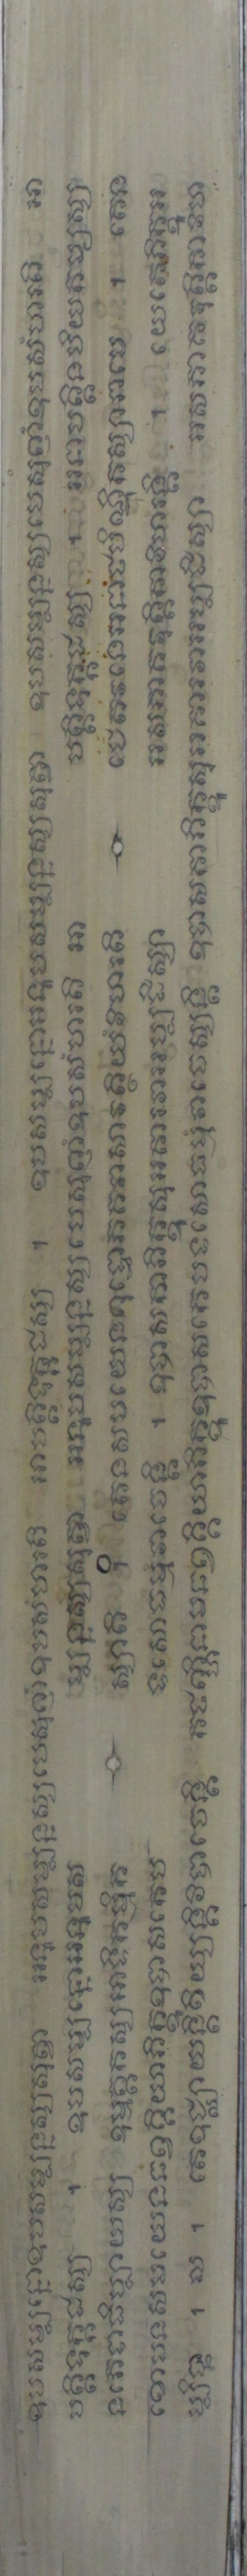 ឧបសម្បន្នោឧបសម្បន្នស្សសុត្វា អនុបសម្បន្នស្សបេសុញំឧបសំហរតិ អាបត្តិទុក្កដស្ស ។ ឧបសម្បន្នោអនុបសម្បន្នស្សសុត្វា ឧបសម្បន្នស្សបេសុញំឧបសំហរតិ អា
បត្តិទុក្កដស្ស ។ ឧបសម្បន្នោអនុបស ម្បន្នស្សសុត្វា អនុបសម្បន្នស្សបេសុញំឧបសំហរតិ អា បត្តិទុក្កដស្ស ។ អនាបត្តិនបិយកម្យស្ស
នភេទាធិប្បាយស្ស ឧម្មត្តកស្សអាទិកម្មិក ស្សាតិ ។ តេនសមយេនពុទ្ធោភគវាសាវត្ថិយំវិហរតិ ជេតវនេអនាថបិណ្ឌិកស្សារាមេ ។ តេន
ខោបនសមយេនឆព្វគ្គិយាភិក្ខូឧបាសកេប ទសោធម្មំវាចេន្តិ ។ ឧបាសកាភិក្ខូសុអគារវាអប្បដិស្សា អសភាគវុត្តិកាវិហរន្តិ ។ យេតេភិក្ខូអ
ប្បិច្ឆា ។ ល ។ តេឧជ្ឈាយន្តិខិយ្យន្តិវិបាចេន្តិ កថញ្ហិនាមឆព្វគ្គិយាភិក្ខូឧបាសកេបទសោធម្មំវាចេស្សន្តិ ឧបាសកាភិក្ខូសុអគារវាអប្បដិស្សា អសភាគវុត្តិកាវិហ